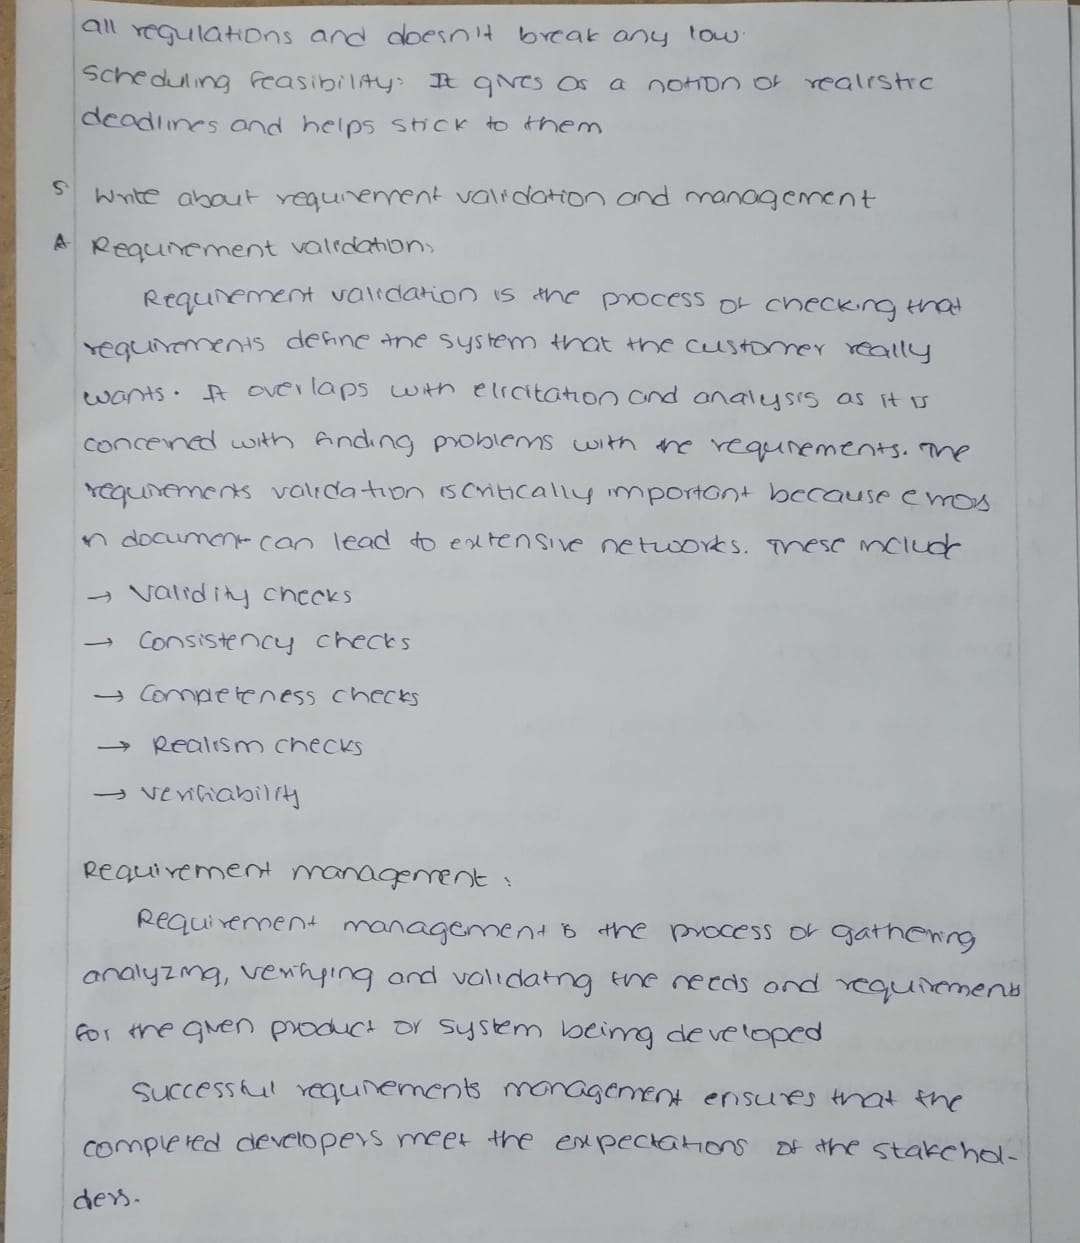 all regulations and doesn't break any low.
Scheduling feasibility: It gives as a notion of realistic
deadlines and helps stick to them
5. Write about requirement validation and management
A Requirement validation:
Requirement validation is the process of checking that
requirements define the system that the customer really
wants. It overlaps with elicitation and analysis as it is
concerned with finding problems with the requirements. The
requirements validation is critically important because errors
in document can lead to extensive networks. These include
→ Validity checks
→ Consistency checks
→ Competeness checks
→ Realism checks
→ verifiability
Requirement management:
Requirement management is the process of gathering
analyzing, verifying and validating the needs and requirements
for the given product or system being developed
Successful requirements management ensures that the
completed developers meet the expectations of the stakehol-
ders.